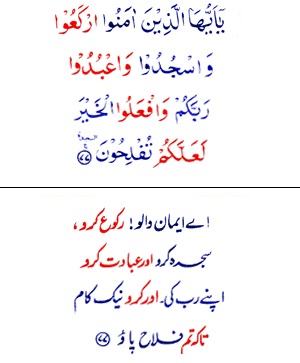 يٰٓاَيُّهَا الَّذِيْنَ اٰمَنُوا ارْكَعُوْا
وَاسْجُدُوْا وَاعْبُدُوْا
رَبَّكُمْ وَافْعَلُوا الْخَيْرَ
لَعَلَّكُمْ تُفْلِحُوْنَ ۩ ﴿۷۷﴾
اے ایمان والو! رکوع کرو،
سجدہ کرو اور عبادت کرو
اپنے رب کی۔ اور کرو نیک کام
تاکہ تم فلاح پاؤ ﴿۷۷﴾